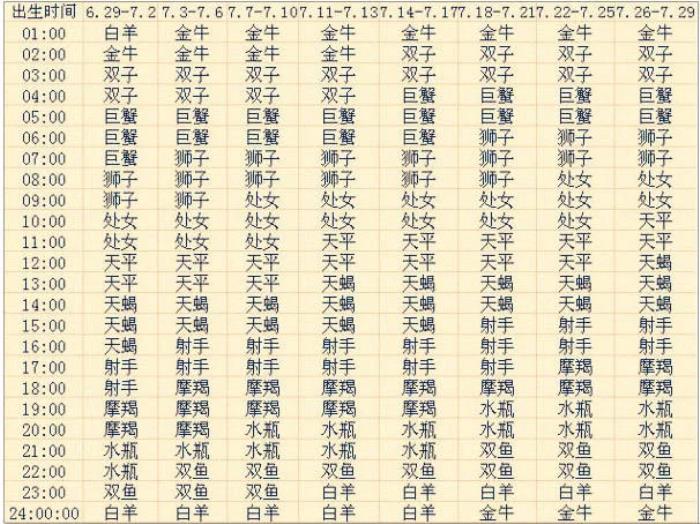 出生时间 6.29-7.2 7.3-7.6 7.7-7.10 7.11-7.13 7.14-7.17 7.18-7.21 7.22-7.25 7.26-7.29
01:00 白羊 金牛 金牛 金牛 金牛 金牛 金牛 金牛
02:00 金牛 金牛 金牛 金牛 双子 双子 双子 双子
03:00 双子 双子 双子 双子 双子 双子 双子 双子
04:00 双子 双子 双子 双子 巨蟹 巨蟹 巨蟹 巨蟹
05:00 巨蟹 巨蟹 巨蟹 巨蟹 巨蟹 巨蟹 巨蟹 巨蟹
06:00 巨蟹 巨蟹 巨蟹 巨蟹 巨蟹 狮子 狮子 狮子
07:00 巨蟹 狮子 狮子 狮子 狮子 狮子 狮子 狮子
08:00 狮子 狮子 狮子 狮子 狮子 狮子 处女 处女
09:00 狮子 狮子 处女 处女 处女 处女 处女 处女
10:00 处女 处女 处女 处女 处女 处女 处女 天平
11:00 处女 处女 处女 天平 天平 天平 天平 天平
12:00 天平 天平 天平 天平 天平 天平 天平 天蝎
13:00 天平 天平 天平 天蝎 天蝎 天蝎 天蝎 天蝎
14:00 天蝎 天蝎 天蝎 天蝎 天蝎 天蝎 天蝎 天蝎
15:00 天蝎 天蝎 天蝎 天蝎 射手 射手 射手 射手
16:00 天蝎 射手 射手 射手 射手 射手 射手 射手
17:00 射手 射手 射手 射手 射手 射手 摩羯 摩羯
18:00 射手 摩羯 摩羯 摩羯 摩羯 摩羯 摩羯 摩羯
19:00 摩羯 摩羯 摩羯 摩羯 摩羯 水瓶 水瓶 水瓶
20:00 摩羯 摩羯 水瓶 水瓶 水瓶 水瓶 水瓶 水瓶
21:00 水瓶 水瓶 水瓶 水瓶 水瓶 双鱼 双鱼 双鱼
22:00 水瓶 双鱼 双鱼 双鱼 双鱼 双鱼 双鱼 双鱼
23:00 双鱼 双鱼 双鱼 白羊 白羊 白羊 白羊 白羊
24:00:00 白羊 白羊 白羊 白羊 白羊 金牛 金牛 金牛